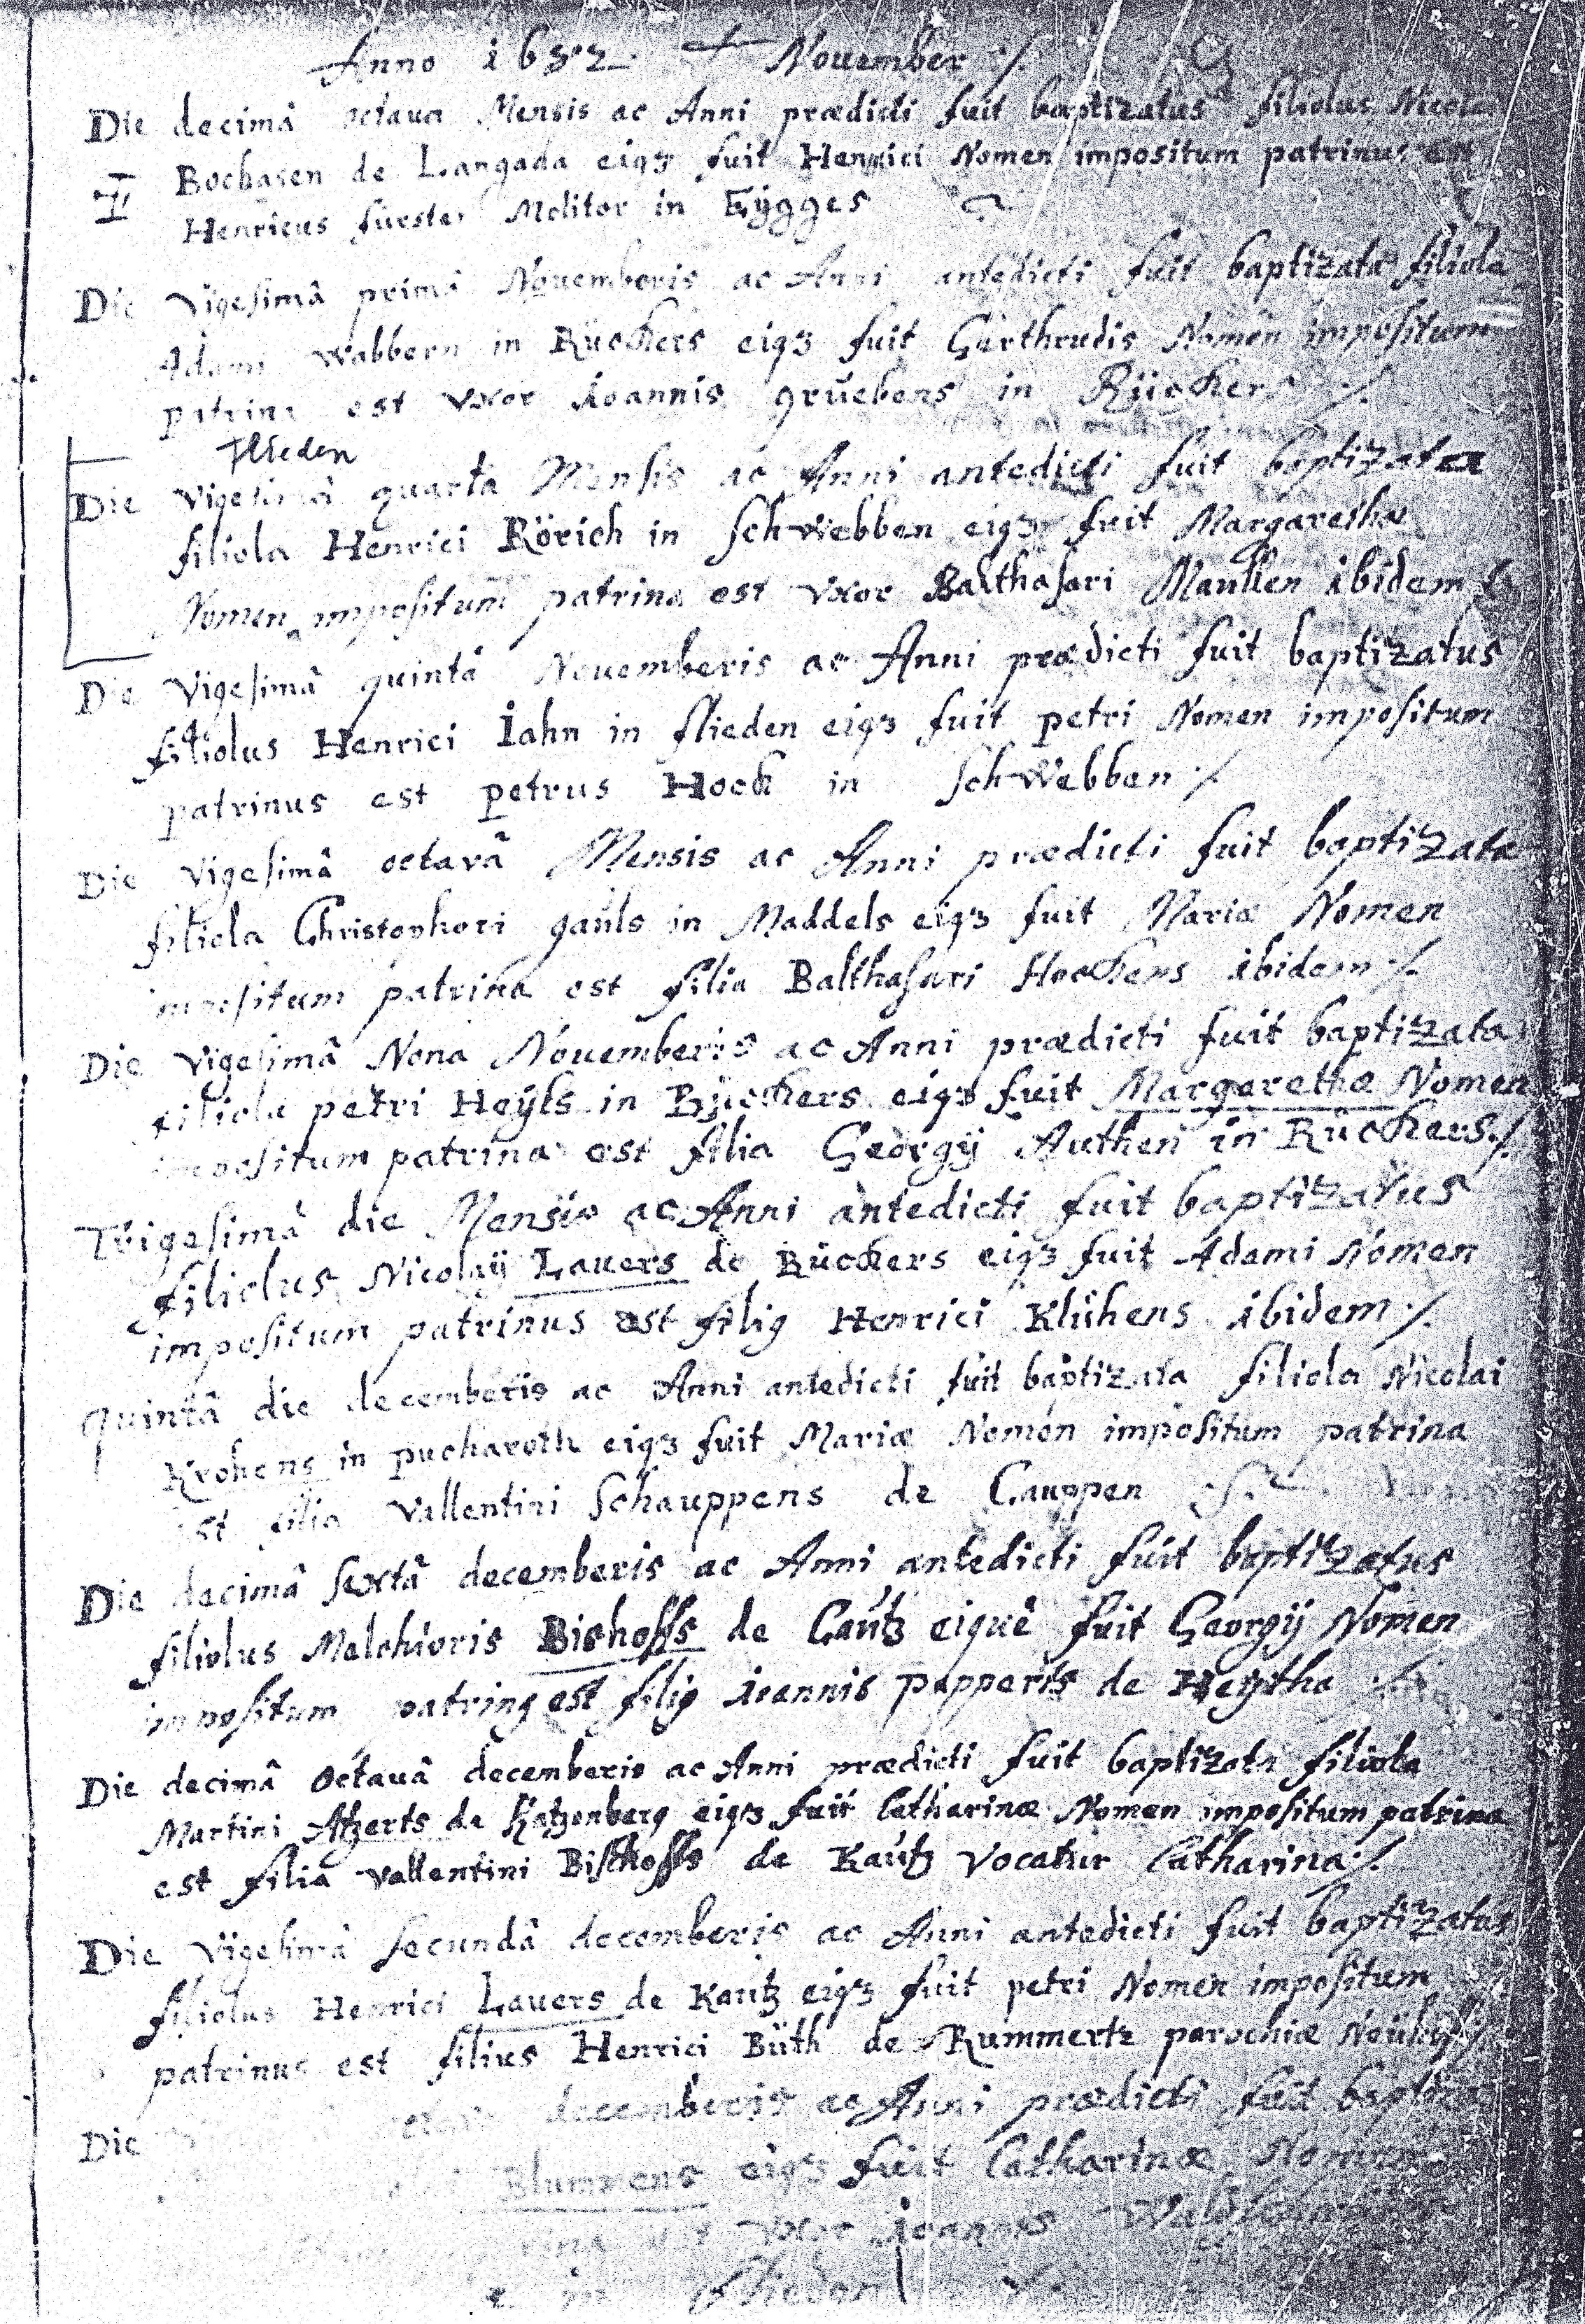 Anno 1632 November ./.
Die decimâ octava Mensis ac Anni prædicti fuit baptizatus filiolus Nicolai
Bochasen de Langada eiqꝫ fuit Henrici Nomen impositum patrinus est
Henricus fürster Molitor in Eÿgges
Die Vigesimâ primâ Nouemberis ac Anni antedicti fuit baptizata filiola
Adami Wabbern in Rückers eiqꝫ fuit Gerthrudis Nomen impositum
patrina est Vxor ioannis grŭebens in Rückers ./.
Flieden
Die Vigesimâ quartâ Mensis ac Anni antedicti fuit baptizata
filiola Henrici Rörich in SchWebben eiqꝫ fuit Margarethæ
Nomen impositum patrina est Vxor Balthasari Maullen ibidem
Die Vigesimâ quintâ Nouemberis ac Anni prædicti fuit baptizatus
filiolus Henrici Iahn in flieden eiqꝫ fuit petri Nomen impositum
patrinus est petrus Hock in SchWebben ./.
Die Vigesimâ octavâ Mensis ac Anni prædicti fuit baptizata
filiola Christophori gaŭls in Maddels eiqꝫ fuit Mariæ Nomen
impositum patrina est filia Balthasari Hockens ibidem ./.
Die Vigesimâ Nona Nouemberis ac Anni prædicti fuit baptizata
filiola petri Heÿls in Rückers eiqꝫ fuit Margarethæ Nomen
impositum patrina est filia Georgÿ Authen in Rückers ./.
Trigesimâ die Mensis ac Anni antedicti fuit baptizatus
filiolus Nicolaÿ Lauers de Rückers eiqꝫ fuit Adami Nomen
impositum patrinus est filiꝰ Henrici Klühens ibidem ./.
quintâ die decemberis ac Anni antedicti fuit baptizata filiola Nicolai
Krohens in pucharoth eiqꝫ fuit Mariæ Nomen impositum patrina
est filia Vallentini Schauppens de Cauppen
Die decimâ sextâ decemberis ac Anni antedicti fuit baptizatus
filiolus Melchioris Bishoffs de Caŭtz eiquè fuit Georgÿ Nomen
impositum patrinꝰ est filiꝰ ioannis papperts de Heÿtha
Die decimâ octauâ decemberis ac Anni prædicti fuit baptizata filiola
Martini Atzerts de Katzenberg eiqꝫ fuit Catharinæ Nomen impositum patrina
est filia Vallentini Bischoffs de Kaŭtz Vocatur Catharina ./.
Die Vigesimâ Secundâ decemberis ac Anni antedicti fuit baptizatus
filiolus Henrici Lauers de Kautz eiqꝫ fuit petri Nomen impositum
patrinus est filius Henrici Büth de Rummertz parochiæ
Die decemberis ac Anni prædicti fuit
Blummens eiqꝫ fuit Catharinæ Nomen
est Vxor ioannis
in flieden